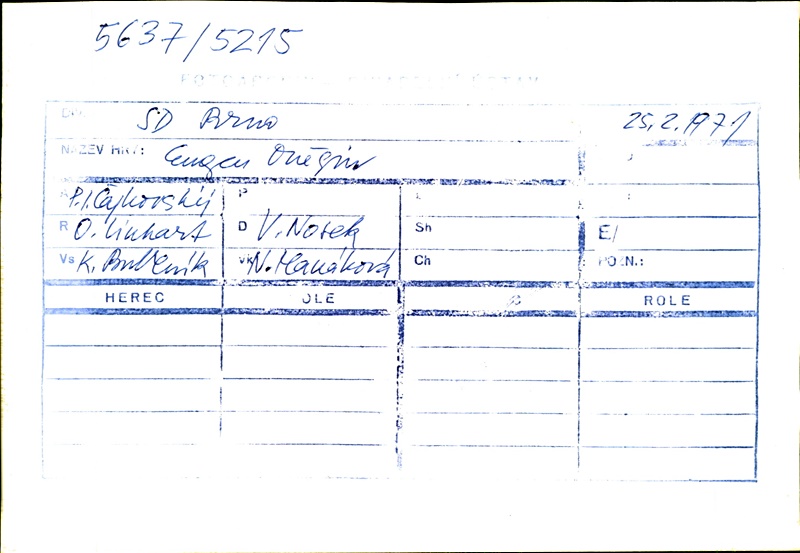 5637/5215
SD Brno 25.2.1971
NÁZEV HRY: Eugen Oněgin
P.I. Čajkovskij P
R O. Linhart D V. Nosek Sh E/
Vs K. Bubeník VK N. Hanáková Ch POZN.:
HEREC OLE ROLE